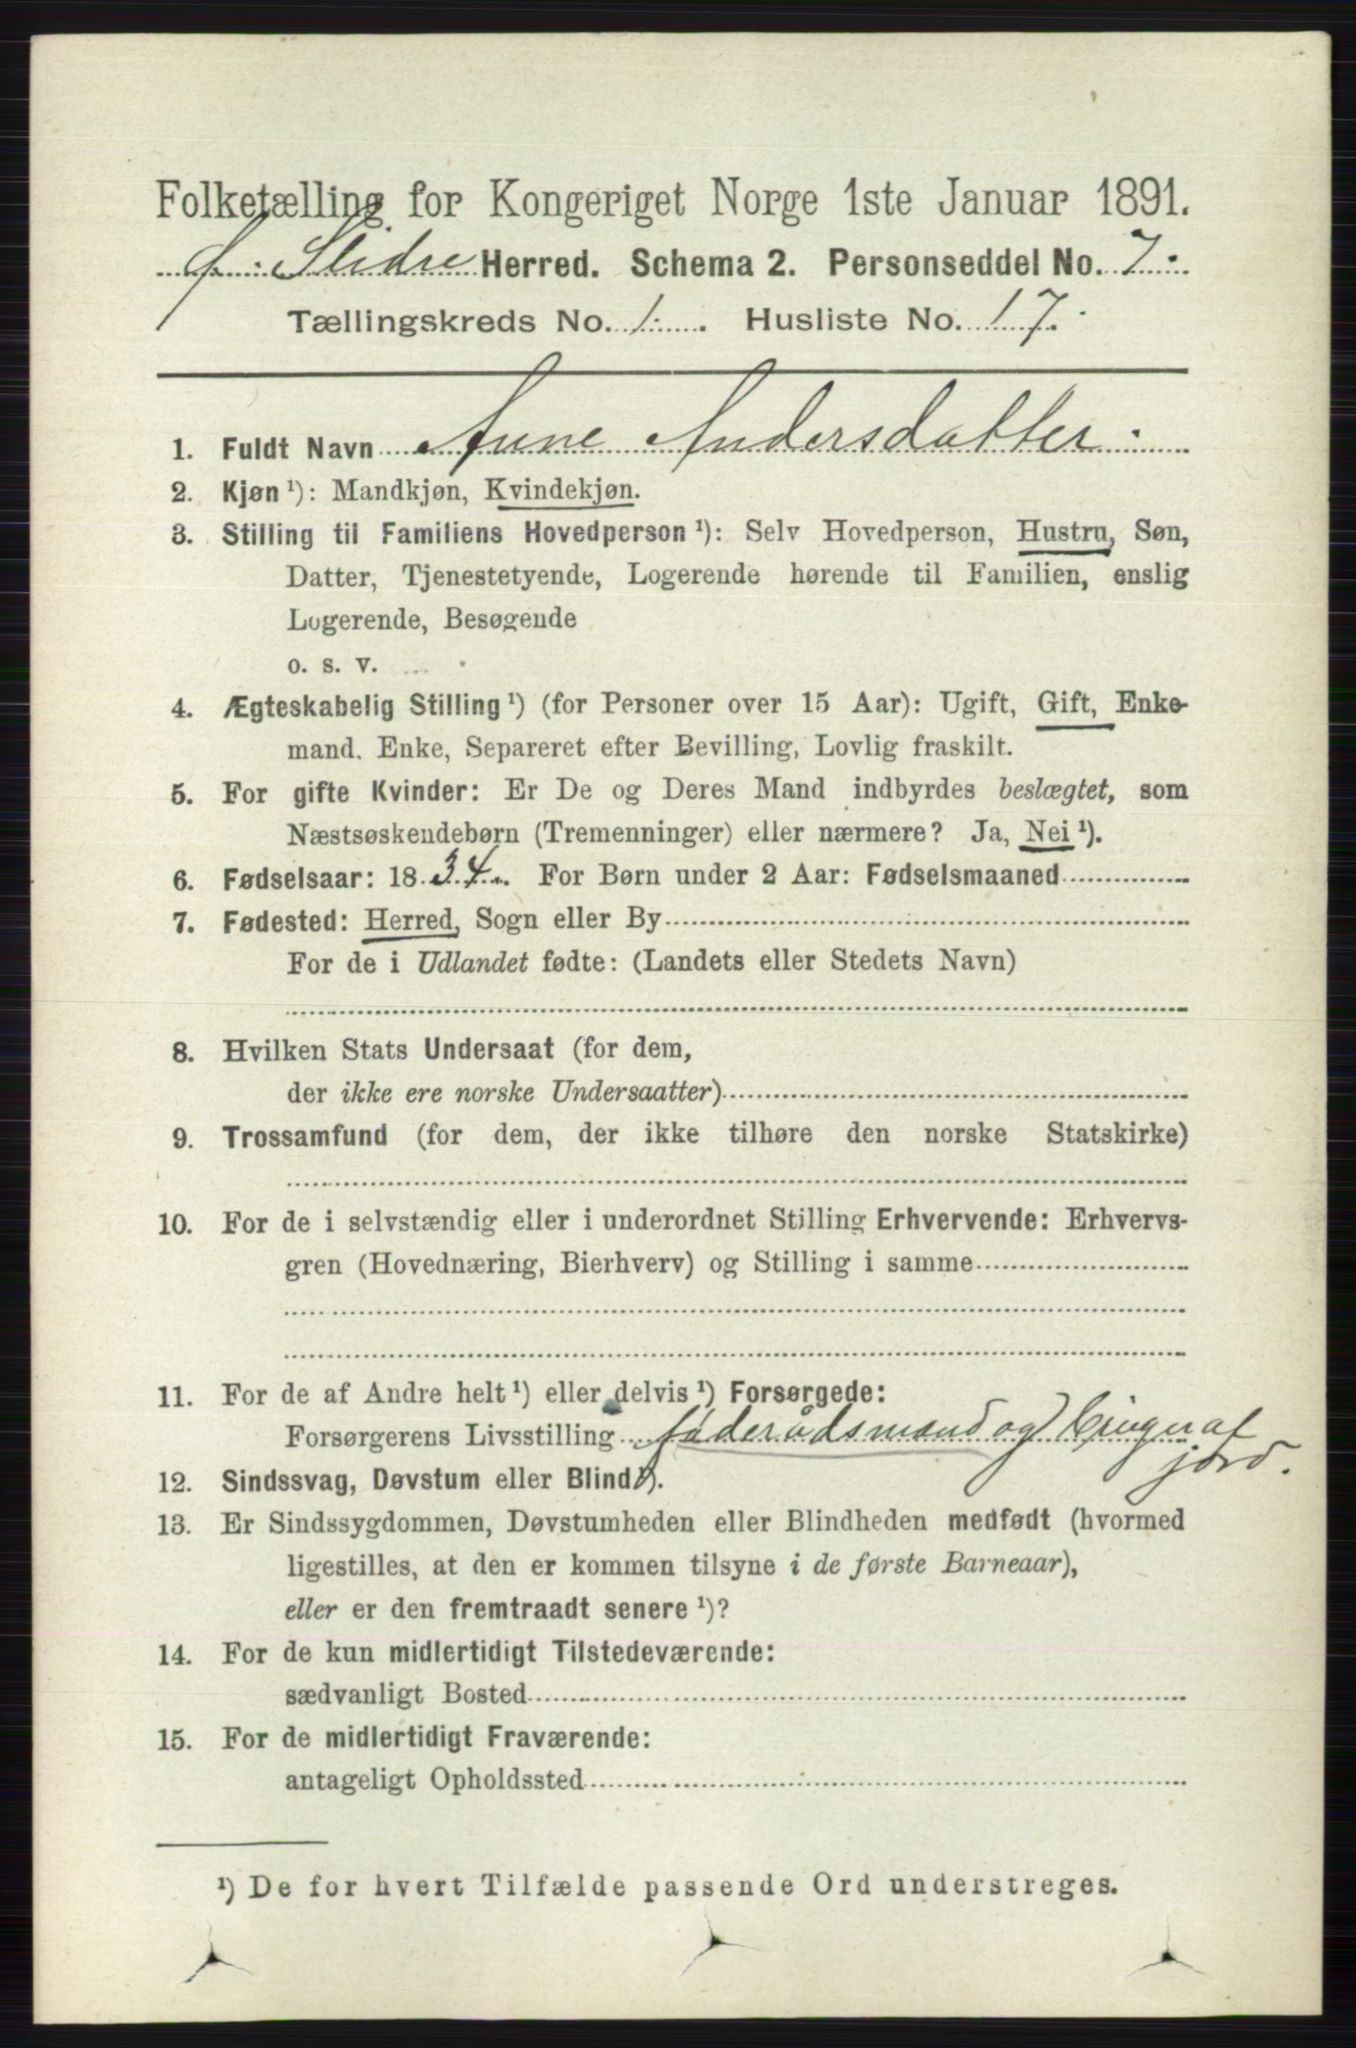 Folketælling for Kongeriget Norge 1ste Januar 1891.
Slidre Herred. Schema 2. Personseddel No. 7.
Tællingskreds No. 1. Husliste No. 17.
1. Fuldt Navn Anne Andersdatter.
2. Kjøn ¹): Mandkjøn, Kvindekjøn.
3. Stilling til Familiens Hovedperson ¹): Selv Hovedperson, Hustru, Søn,
Datter, Tjenestetyende, Logerende hørende til Familien, enslig
Logerende, Besøgende
o. s. v.
4. Ægteskabelig Stilling ¹) (for Personer over 15 Aar): Ugift, Gift, Enke-
mand, Enke, Separeret efter Bevilling, Lovlig fraskilt.
5. For gifte Kvinder: Er De og Deres Mand indbyrdes beslægtet, som
Næstsøskendebørn (Tremenninger) eller nærmere? Ja, Nei ¹).
6. Fødselsaar: 1834. For Børn under 2 Aar: Fødselsmaaned
7. Fødested: Herred, Sogn eller By
For de i Udlandet fødte: (Landets eller Stedets Navn)
8. Hvilken Stats Undersaat (for dem,
der ikke ere norske Undersaatter)
9. Trossamfund (for dem, der ikke tilhøre den norske Statskirke)
10. For de i selvstændig eller i underordnet Stilling Erhvervende: Erhvervs-
gren (Hovednæring, Bierhverv) og Stilling i samme
11. For de af Andre helt ¹) eller delvis ¹) Forsørgede:
Forsørgerens Livsstilling føderådsmand og bruger af
jord.
12. Sindssvag, Døvstum eller Blind ¹).
13. Er Sindssygdommen, Døvstumheden eller Blindheden medfødt (hvormed
ligestilles, at den er kommen tilsyne i de første Barneaar),
eller er den fremtraadt senere ¹)?
14. For de kun midlertidigt Tilstedeværende:
sædvanligt Bosted
15. For de midlertidigt Fraværende:
antageligt Opholdssted
¹) De for hvert Tilfælde passende Ord understreges.